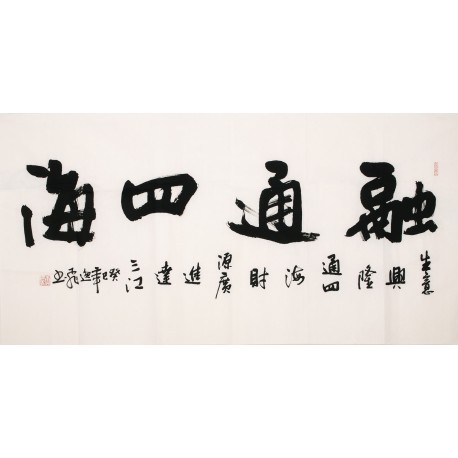 融通四海
生意興隆通四海財源廣進達三江
癸巳年